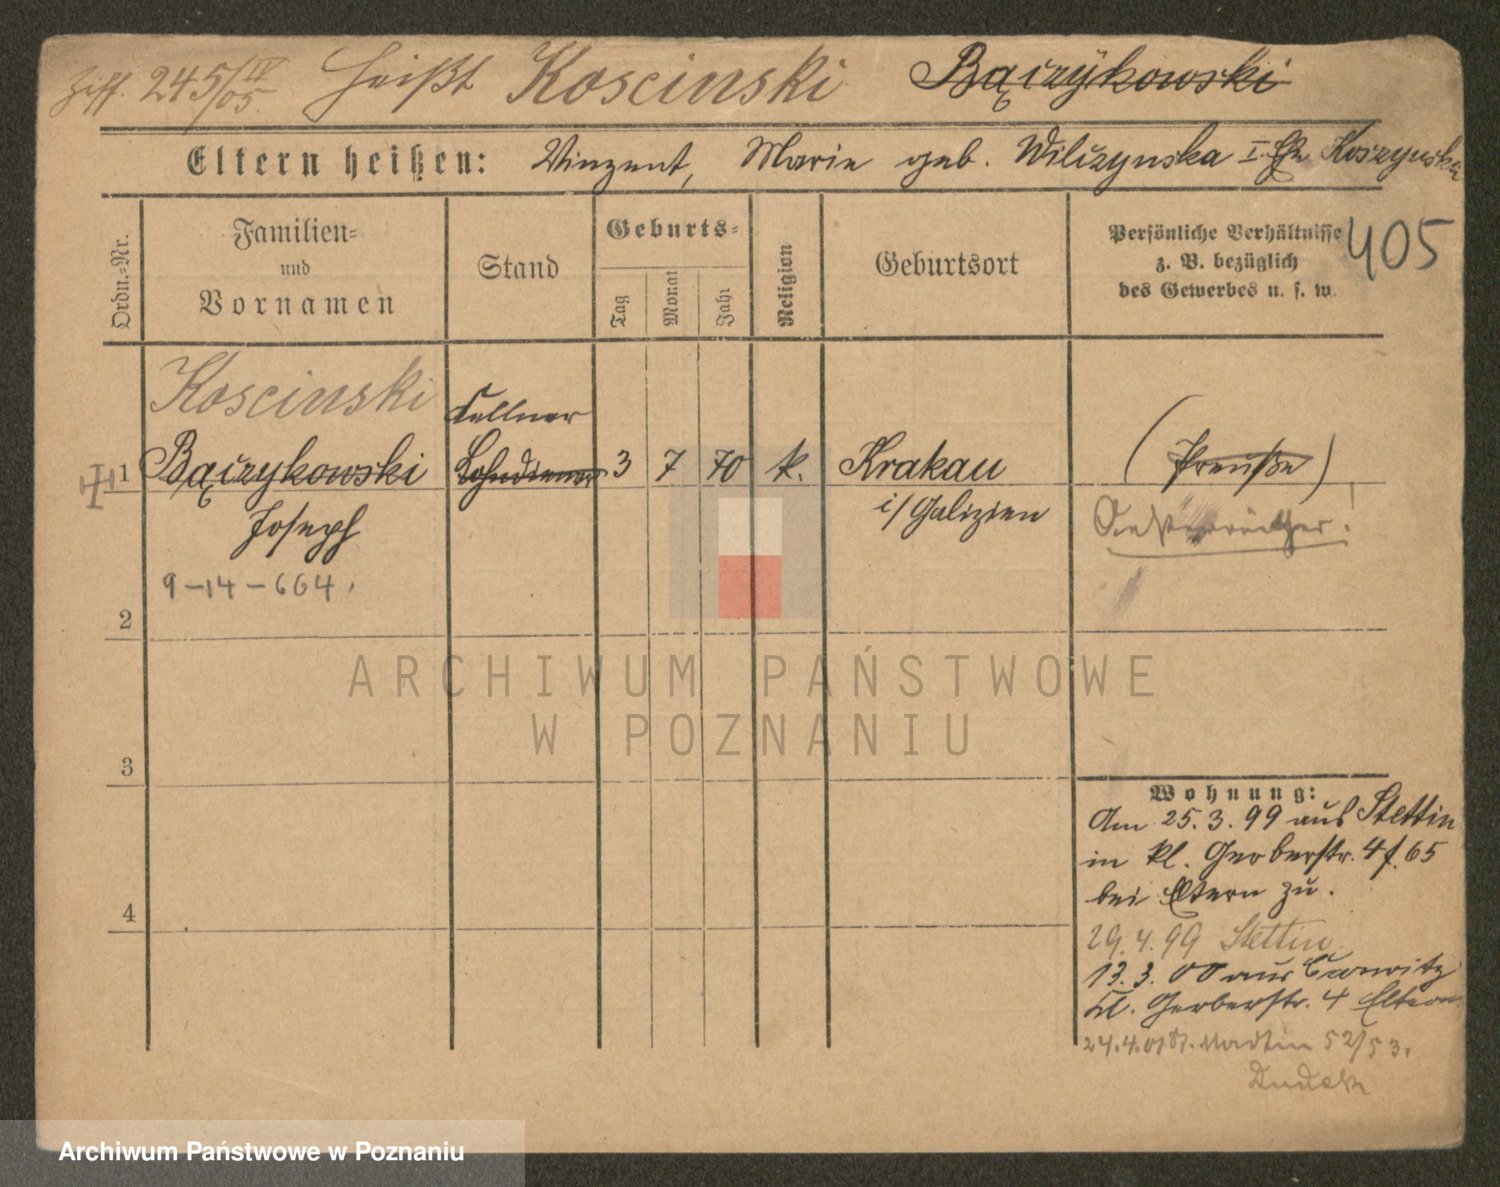 Ziff. 245/IV 05. heißt Koscinski Bączykowski
Eltern heißen: Vinzent, Marie geb. Wilczynska I. Ehe Koszynska
Ordn.-Nr.
Familien-
und
Vornamen
Stand
Geburts-
Tag
Monat
Jahr
Religion
Geburtsort
Persönliche Verhältnisse
z. B. bezüglich
des Gewerbes u. s. w.
405
Koscinski
Kellner
1 Bączykowski Lohndiener 3 7 70 k. Krakau (Preuße)
Joseph i/Galizien Oesterreicher!
9-14-664.
2
3
4
ARCHIWUM PAŃSTWOWE
W POZNANIU
Wohnung:
Am 25.3.99 aus Stettin
in kl. Gerberstr. 4 f. 65
bei Eltern zu.
29.4.99 Stettin.
13.3.00 aus
Kl. Gerberstr. 4 Eltern
24.4.01 St. Martin 52/53.
Archiwum Państwowe w Poznaniu